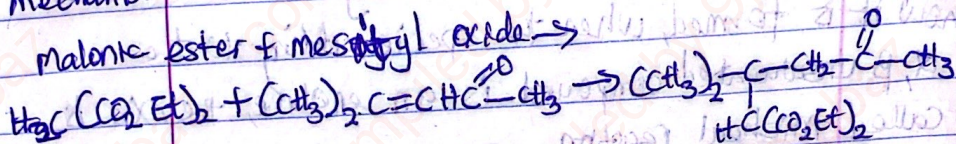 Malonic ester & mesityl oxide →
H₂C(CO₂Et)₂ + (CH₃)₂C=CHC(=O)–CH₃ → (CH₃)₂–C–CH₂–C(=O)–CH₃
HC(CO₂Et)₂